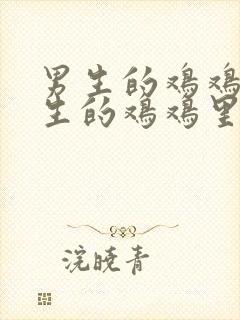 男生的鸡鸡
生的鸡鸡里
浣晓青